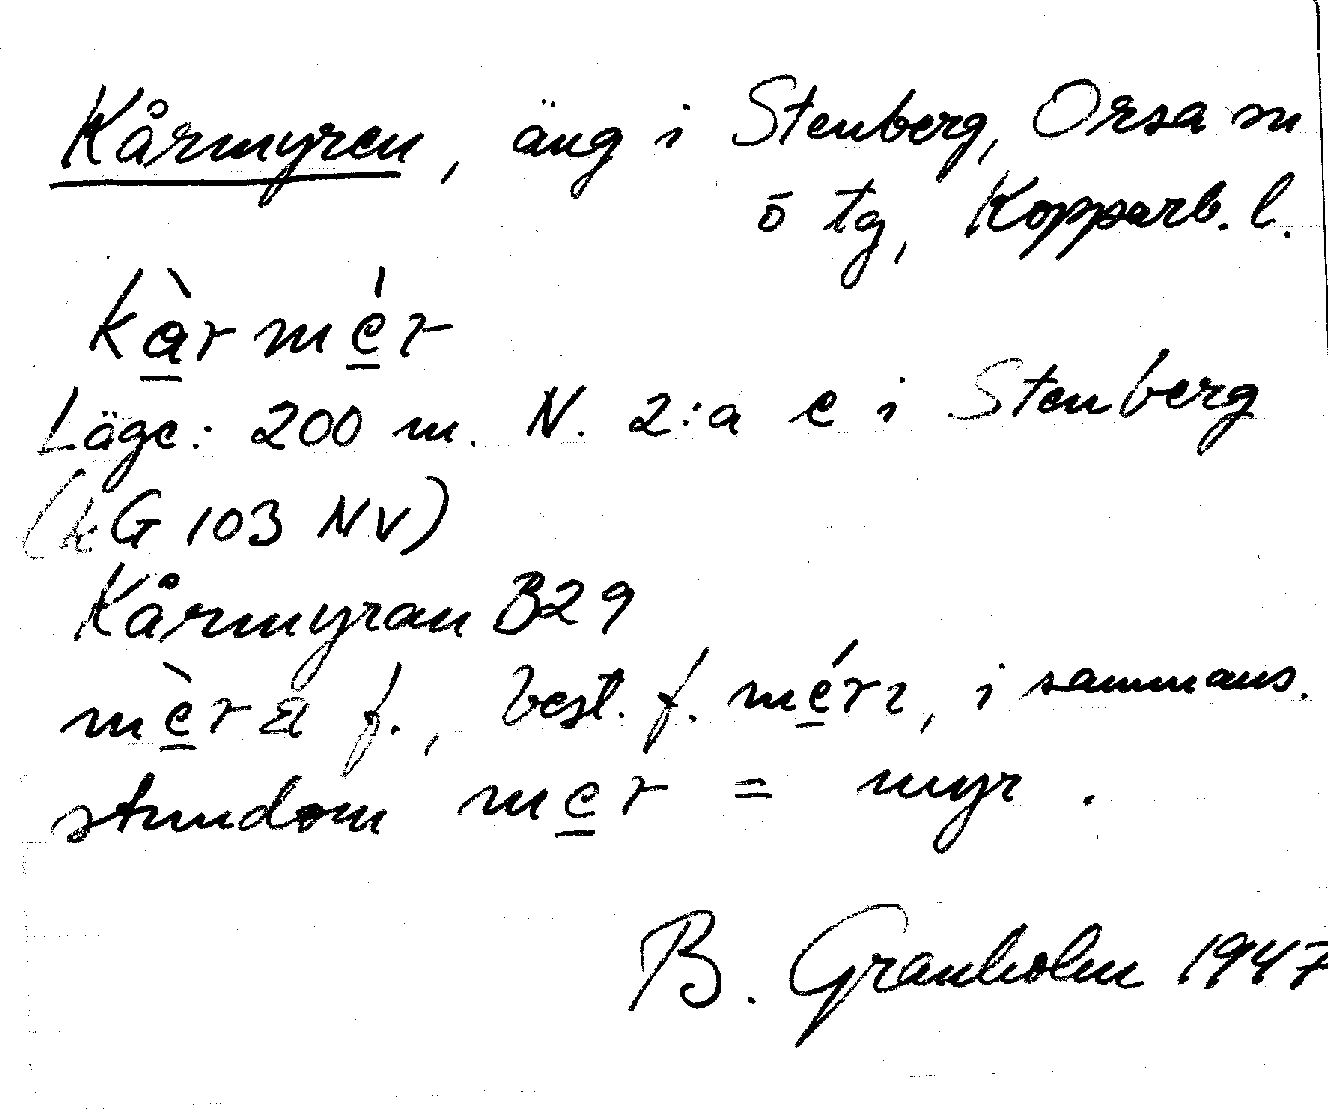 Kårmyren, äng i Stenberg, Orsa sn
ö tg, Kopparb. l.
kàrmér
Läge: 200 m. N. 2:a e i Stenberg
(kG 103 NV)
Kårmyran B29
mèra f., best. f. mérı, i sammans.
stundom mer = myr.
B. Granholm 1947